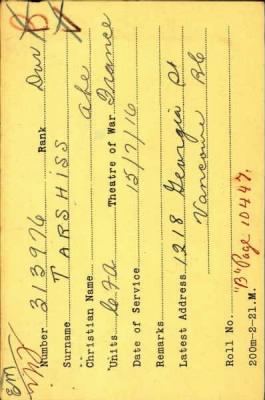 EM
Number 313976 Rank Dvr
Surname TARSHISS
Christian Name Abe
Units C.F.A. Theatre of War France
Date of Service 15/7/16
Remarks
Latest Address 1218 Georgia St
Vancouver BC
Roll No. "B" Page 10447.
200m-2-21.M.